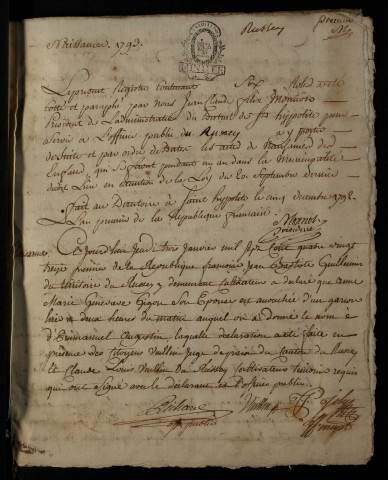 Naissance 1793.
Russey
premier
Le present Registre contenant Six
cotté et paraphé par nous Jean Claude
President de L'administration du District de St hypolite pour
servir à L'officier public du Russey a y porter
de suite et par ordre de Datte les actes de Naissances des
Enfans qui Seront pendant un an dans la Municipalité
dudit Lieu en execution de la Loy du 20 Septembre dernier
fait au Directoire à Saint hypolite le cinq decembre 1792.
L'an premier de la Republique francaise
president
Cejourdhuy Jeudi trois janvier mil Sept Cent quatre vingt
treize premier de la Republique francoise Jean Baptiste Guillemin
du territoire du Russey y demeurant Cultivateur a declaré que anne
Marie Genevieve Gigon Son Epouse est accouchée d'un garçon
hier a deux heures du matin auquel on a donné le nom
d'Emmanuel Augustin laquelle declaration a été faite en
presence des Citoyens Juge de paix du Canton du Russey
Et Claude Louis du Russey Cultivateur temoins requis
qui ont signé avec le declarant et l'officier public.
off public